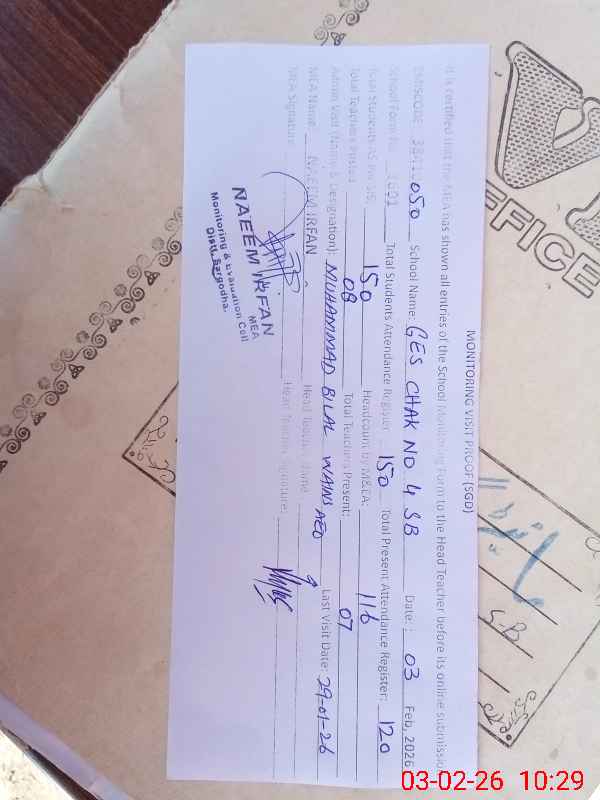 MONITORING VISIT PROOF (SGD)
It is certified that the MEA has shown all entries of the School Monitoring Form to the Head Teacher before its online submissio
EMISCODE: 050 School Name: GES CHAK NO 4 SB Date: 03 Feb, 2026
School Form No. Total Students Attendance Register 150 Total Present Attendance Register: 120
Total Students AS Per SIS: 150 Headcount by M&EA: 116
Total Teachers Posted 08 Total Teachers Present: 07
Admin Visit (Name & Designation): MUHAMMAD BILAL WAINS AEO Last Visit Date: 29-01-26
MEA Name NAEEM IRFAN Head Teacher Name
MEA Signature Head Teacher Signature:
NAEEM IRFAN
MEA
Monitoring & Evaluation Cell
Distt. Sargodha.
OFFICE
S-B
03-02-26 10:29